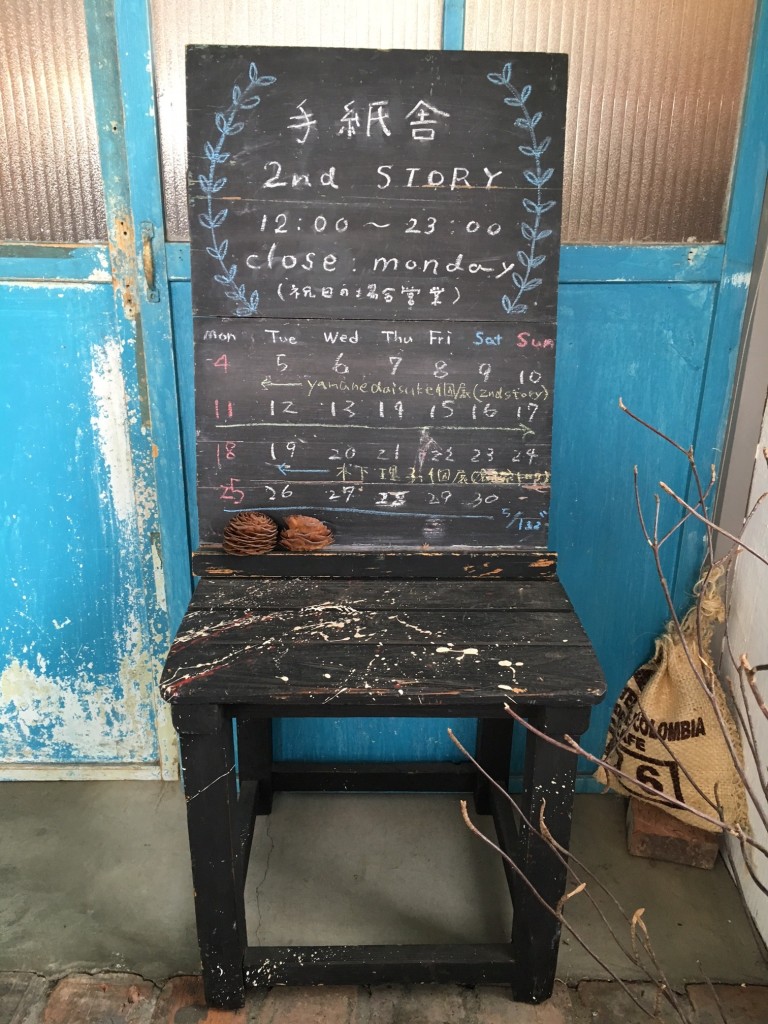 手紙舎
2nd STORY
12:00 〜 23:00
close : monday
(祝日の場合営業)
Mon Tue Wed Thu Fri Sat Sun
4 5 6 7 8 9 10
← yamane daisuke個展(2nd story)
11 12 13 14 15 16 17
18 19 20 21 22 23 24
← 木下理子個展
25 26 27 28 29 30 -
COLOMBIA
CAFE
S